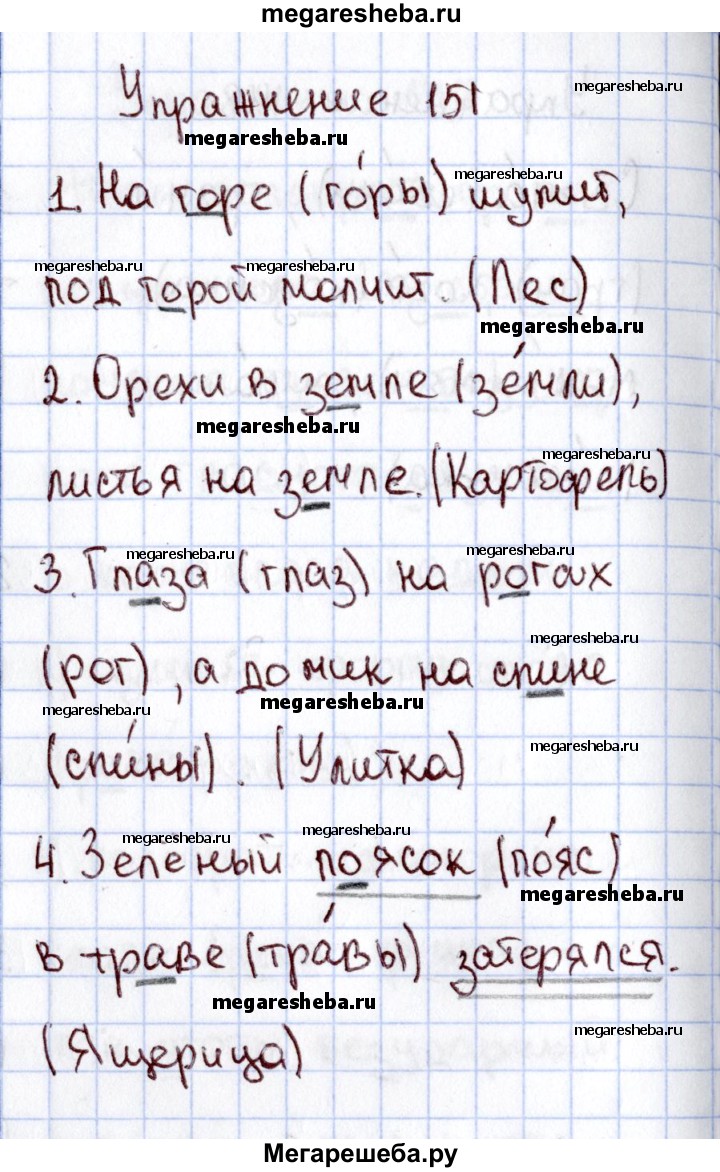 megaresheba.ru
Упражнение 151
megaresheba.ru
megaresheba.ru
megaresheba.ru
1. На горе (го́ры) шумит,
megaresheba.ru
megaresheba.ru
под горой молчит. (Лес)
megaresheba.ru
2. Орехи в земле (зе́мли),
megaresheba.ru
megaresheba.ru
листья на земле. (Картофель)
megaresheba.ru
megaresheba.ru
3. Глаза (глаз) на рогах
megaresheba.ru
(рог), а домик на спине
megaresheba.ru
megaresheba.ru
megaresheba.ru
(спи́ны). (Улитка)
megaresheba.ru
megaresheba.ru
4. Зеленый поясок (по́яс)
megaresheba.ru
в траве (тра́вы) затерялся.
megaresheba.ru
megaresheba.ru
(Ящерица)
Мегарешеба.ру